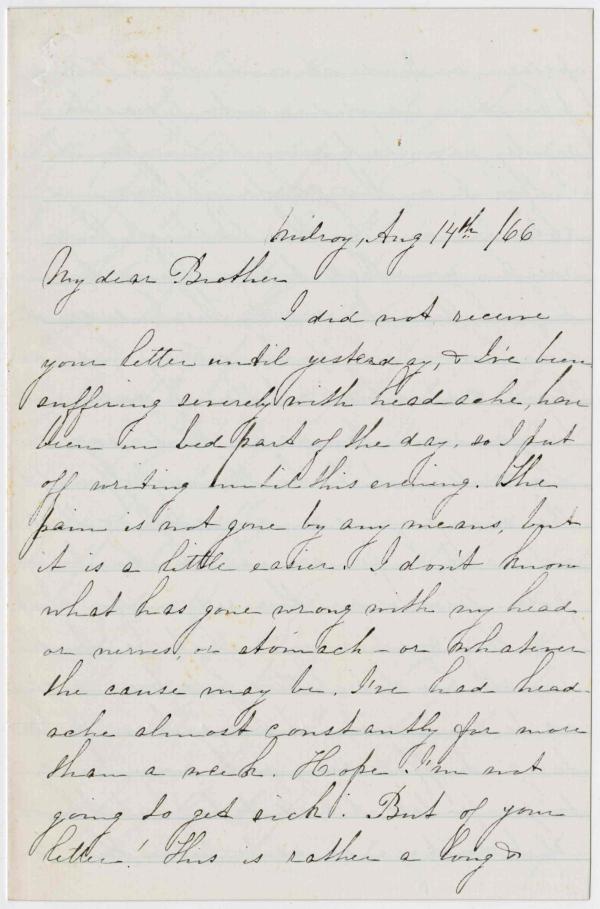 Milroy, Aug 14th /66
My dear Brother
I did not receive
your letter until yesterday, & I've been
suffering severely with head ache, have
been in bed part of the day, so I put
off writing until this evening. The
pain is not gone by any means, but
it is a little easier. I don't know
what has gone wrong with my head
or nerves, or stomach - or whatever
the cause may be. I've had head-
ache almost constantly for more
than a week. Hope I'm not
going to get sick. But of your
letter! This is rather a long &